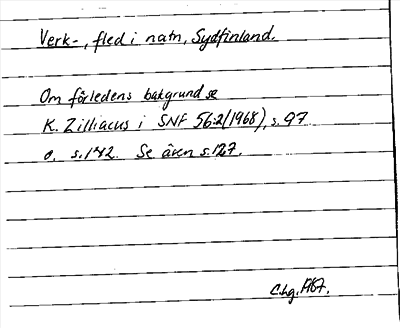 Verk-, fled i natn, Sydfinland.
Om förledens bakgrund se
K. Zilliacus i SNF 56:2 (1968), s. 97
o. s. 142. Se även s. 127.
C.hg.